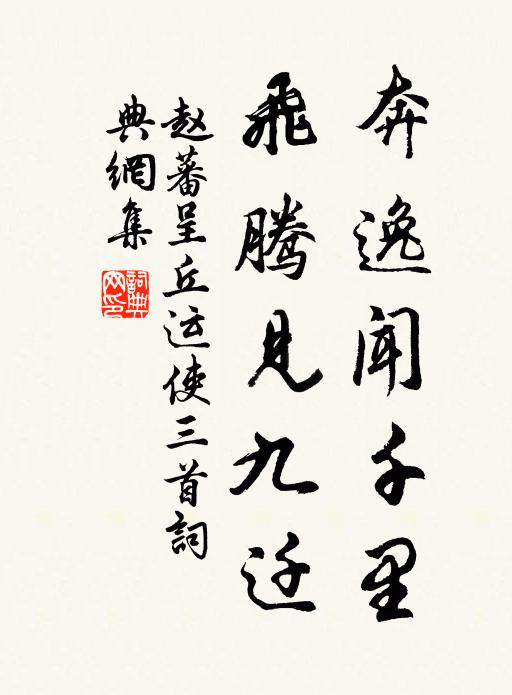 奔逸闻千里
飛腾见九迁
赵蕃呈丘运使三首詞
典網集
詞典网印